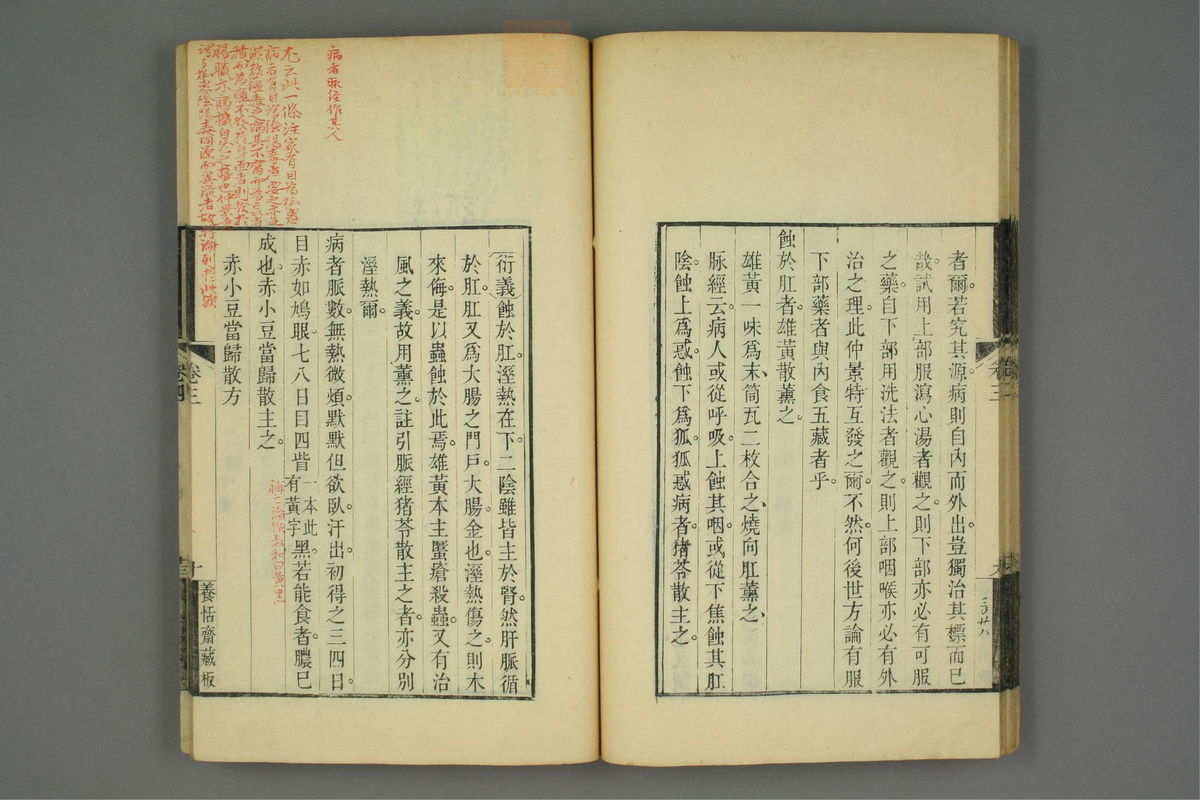 者爾。若究其源。病則自內而外出。豈獨治其標而已
哉。試用上部服瀉心湯者觀之。則下部亦必有可服
之藥。自下部用洗法者觀之。則上部咽喉亦必有外
治之理。此仲景特互發之爾。不然。何後世方論有服
下部藥者與內食五藏者乎。
蝕於肛者雄黃散薰之。
雄黃一味爲末、筒瓦二枚合之、燒向肛薰之、
脉經云。病人或從呼吸上蝕其咽。或從下焦蝕其肛
陰。蝕上爲惑。蝕下爲狐。狐惑病者。猪苓散主之。
卷三
衍義蝕於肛。溼熱在下。二陰雖皆主於腎。然肝脈循
於肛。肛又爲大腸之門戶。大腸金也。溼熱傷之。則木
來侮。是以蟲蝕於此焉。雄黃本主䘌瘡殺蟲。又有治
風之義。故用薰之。註引脈經猪苓散主之者。亦分別
溼熱爾。
病者脈數。無熱微煩。默默但欲臥。汗出。初得之三四日。
目赤如鳩眼。七八日目四眥一本此有黃字黑。若能食者。膿已
成也。赤小豆當歸散主之。
赤小豆當歸散方
卷三
十
養恬齋藏板
卷四
病者脉経作其人